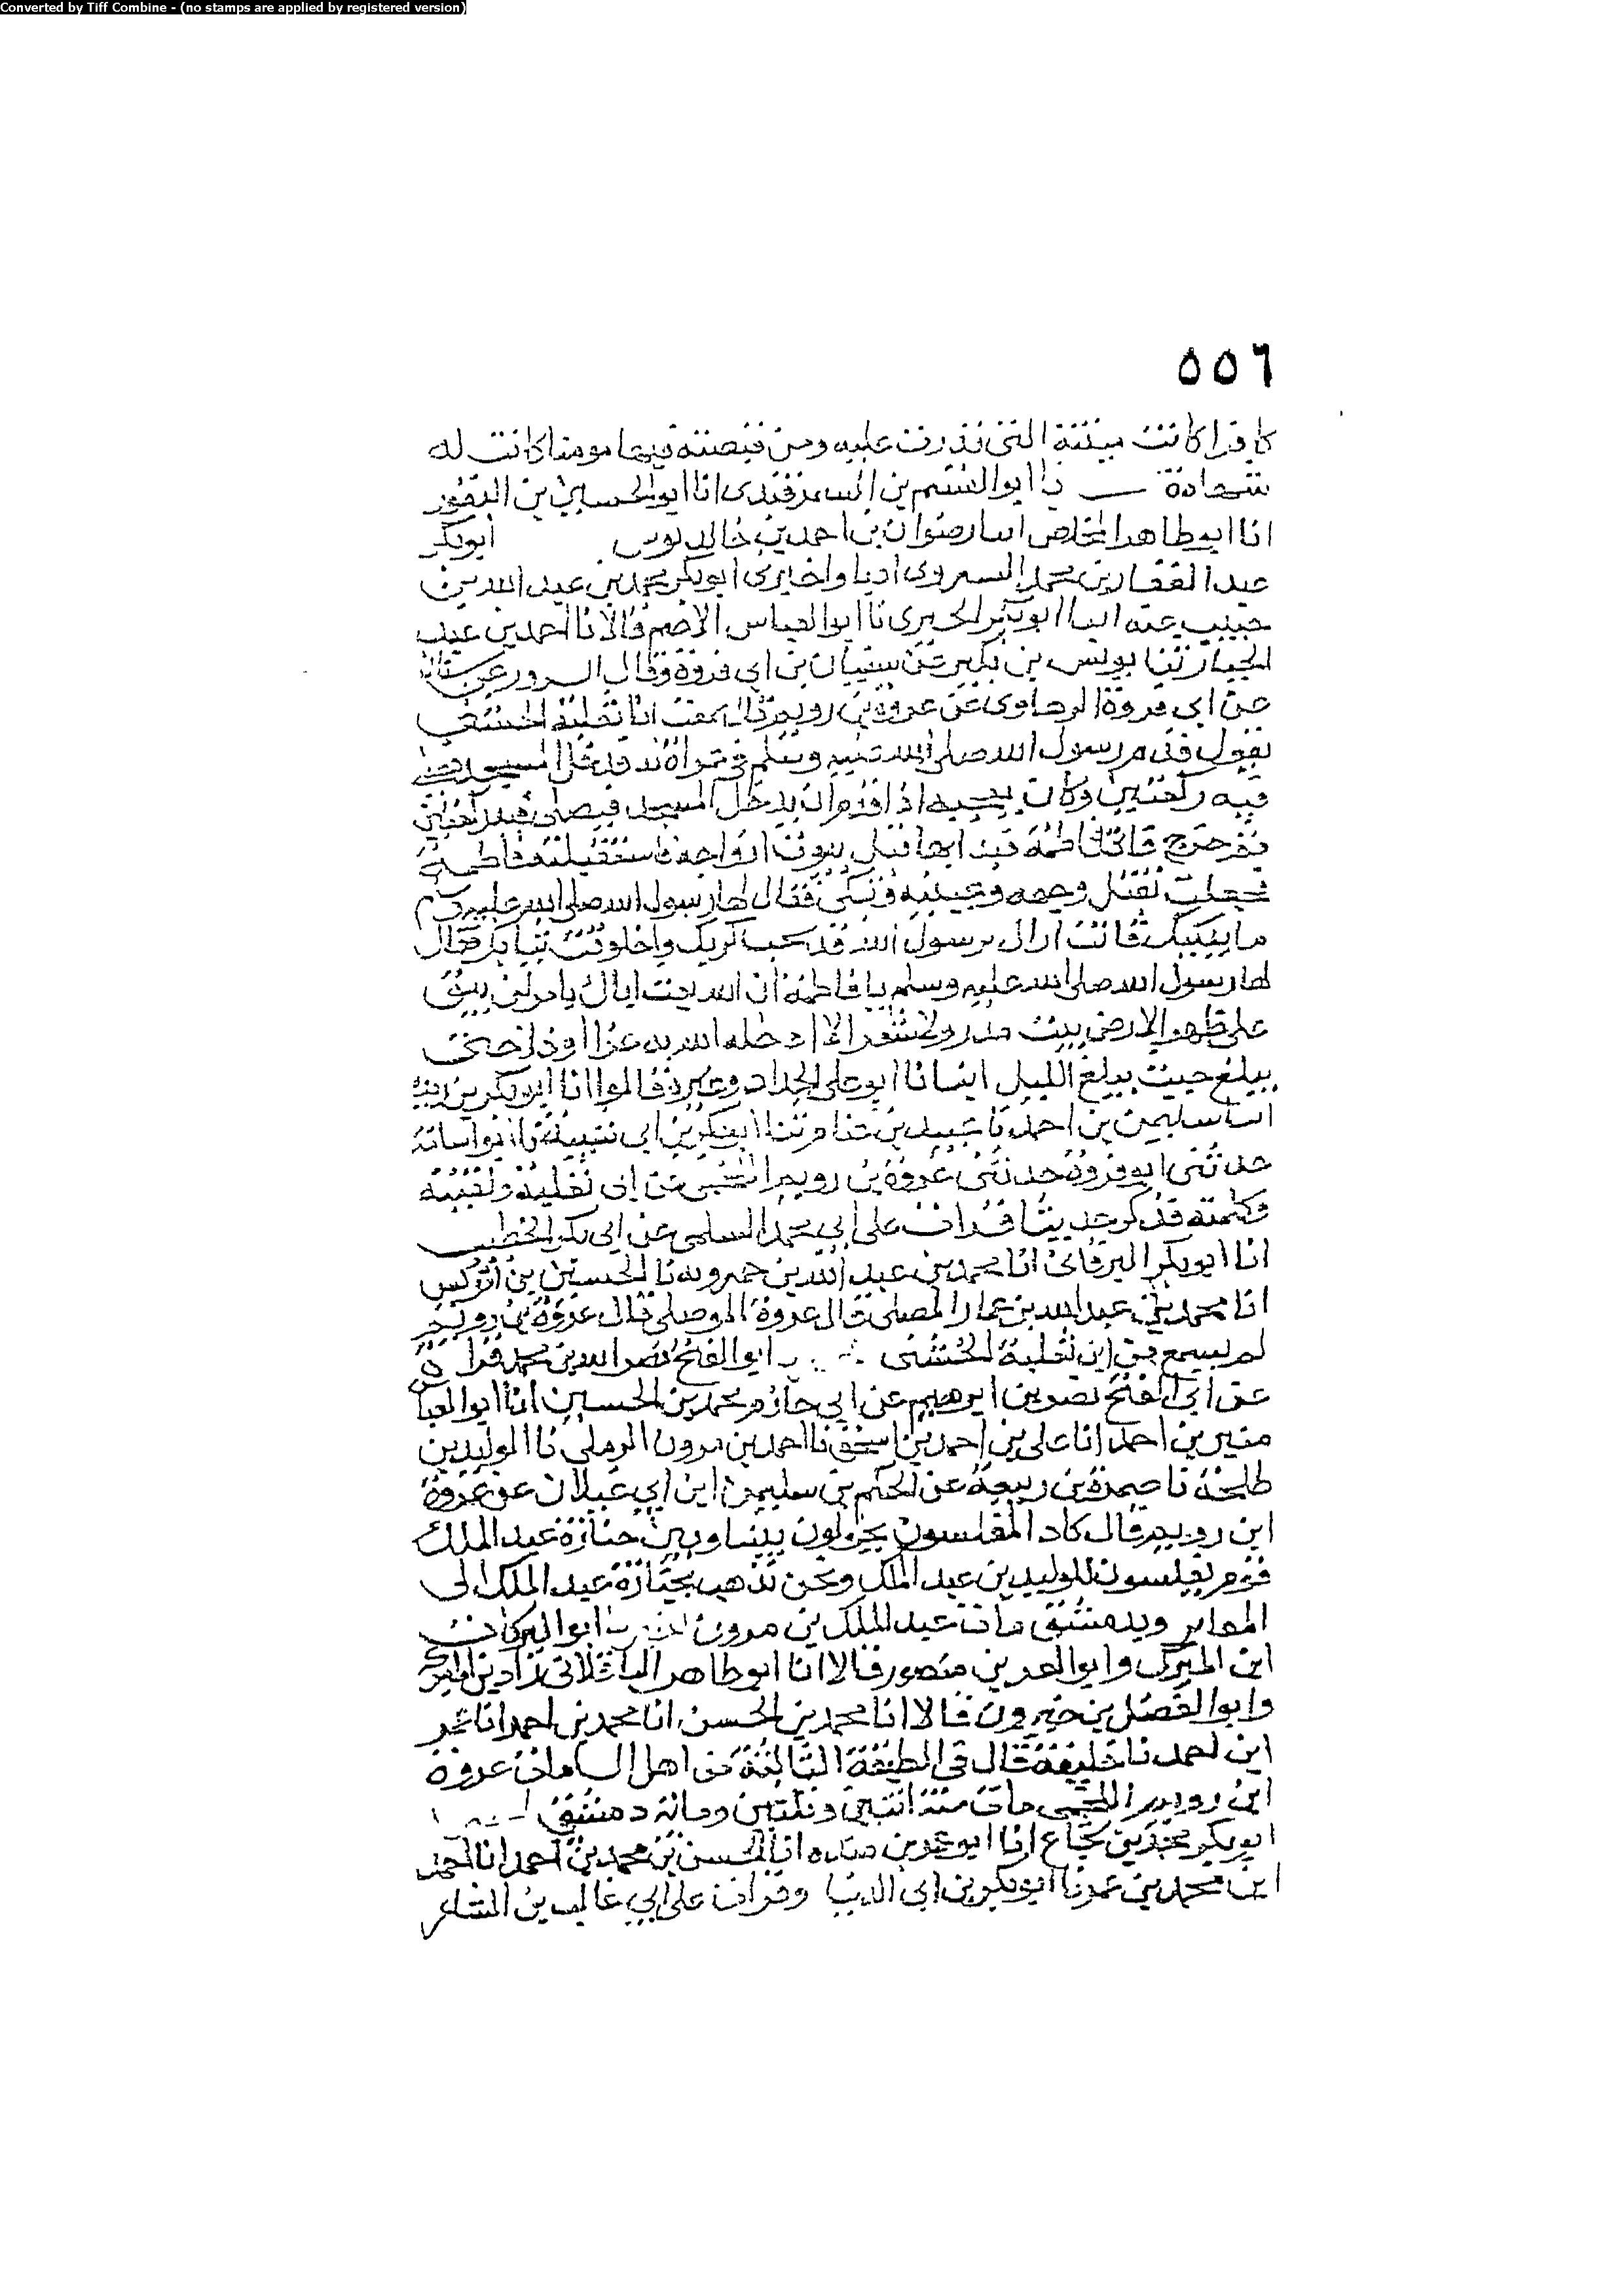 Converted by Tiff Combine - (no stamps are applied by registered version)
٥٥٦
كافرا كانت ميتته التى قدرت عليه ومن قبضته فيها مومنا كانت له
شهادة ابو القسم بن السمرقندى انا ابو الحسين بن النقور
انا ابو طاهر المخلص انبا رضوان بن احمد بن خالد ابو بكر
عبد الغفار بن محمد واخبرى ابو بكر محمد بن عبد الله بن
حبيب عنه انبا ابو بكر الحيرى نا ابو العباس الاصم قالا نا احمد بن عبد
الجبار ثنا يونس بن بكير عن سنان بن ابى فروة وقال
عن ابى فروة الرهاوى عن عروة بن رويم قال سمعت ابا ثعلبة الخشنى
يقول قدم رسول الله صلى الله عليه وسلم فى غزاة له فدخل المسجد فصلى
فيه ركعتين وكان يعجبه اذا قدم ان يدخل المسجد فيصلى فيه ركعتين
ثم خرج فاتى فاطمة فبدا بها قبل بيوت ازواجه فاستقبلته فاطمة
فجعلت تقبل وجهه وعينيه وتبكى فقال لها رسول الله صلى الله عليه وسلم
ما يبكيك قالت اراك يرسول الله قد شحب لونك واخلولقت ثيابك فقال
لها رسول الله صلى الله عليه وسلم يا فاطمة ان الله بعث اباك بامر لم يبق
على ظهر الارض بيت مدر ولا شعر الا ادخله الله به عزا او ذلا حتى
يبلغ حيث يبلغ الليل انبانا ابو على الحداد وغيره قالوا انا ابو بكر بن ريذه
انبا سليمن بن احمد نا عبيد بن غنام ثنا ابو بكر بن ابى شيبة نا ابو اسامة
حدثنى ابو فروة حدثنى عروة بن رويم اللخمى عن ابى ثعلبة ولقيته
وكلمته فذكر حديثا قرات على ابى محمد السلمى عن ابى بكر الخطيب
انا ابو بكر البرقانى انا محمد بن عبد الله بن خميرويه نا الحسين بن ادريس
انا محمد بن عبد الله بن عمار الموصلى قال عروة بن رويم
لم يسمع من ابى ثعلبة الخشنى ابو الفتح نصر الله بن محمد
عن ابى الفتح نصر بن ابرهيم عن ابى حازم محمد بن الحسين انا ابو العباس
منير بن احمد انا على بن احمد بن اسحق نا احمد بن مرون الرملى نا الوليد بن
طلحة نا ضمرة بن ربيعة عن الحكم بن سليمن ابن ابى غيلان عن عروة
ابن رويم قال كاد المقلسون يحولون بيننا وبين جنازة عبد الملك
قوم يقلسون للوليد بن عبد الملك ونحن نذهب بجنازة عبد الملك الى
المقابر وبدمشق مات عبد الملك بن مرون ابو البركات
ابن المبرك وابو العز بن منصور قالا انا ابو طاهر الباقلانى زاد ابن المبرك
وابو الفضل بن خيرون قالا انا محمد بن الحسن انا محمد بن احمد انا عمر
ابن احمد نا خليفة قال فى الطبقة الثالثة من اهل الشامات عروة
ابن رويم اللخمى مات سنة اثنتين وثلثين ومائة دمشقى
ابو بكر محمد بن شجاع انا ابو عمرو بن منده انا الحسن بن محمد بن احمد انا احمد
ابن محمد بن عمر نا ابو بكر بن ابى الدنيا وقرات على ابى غالب بن